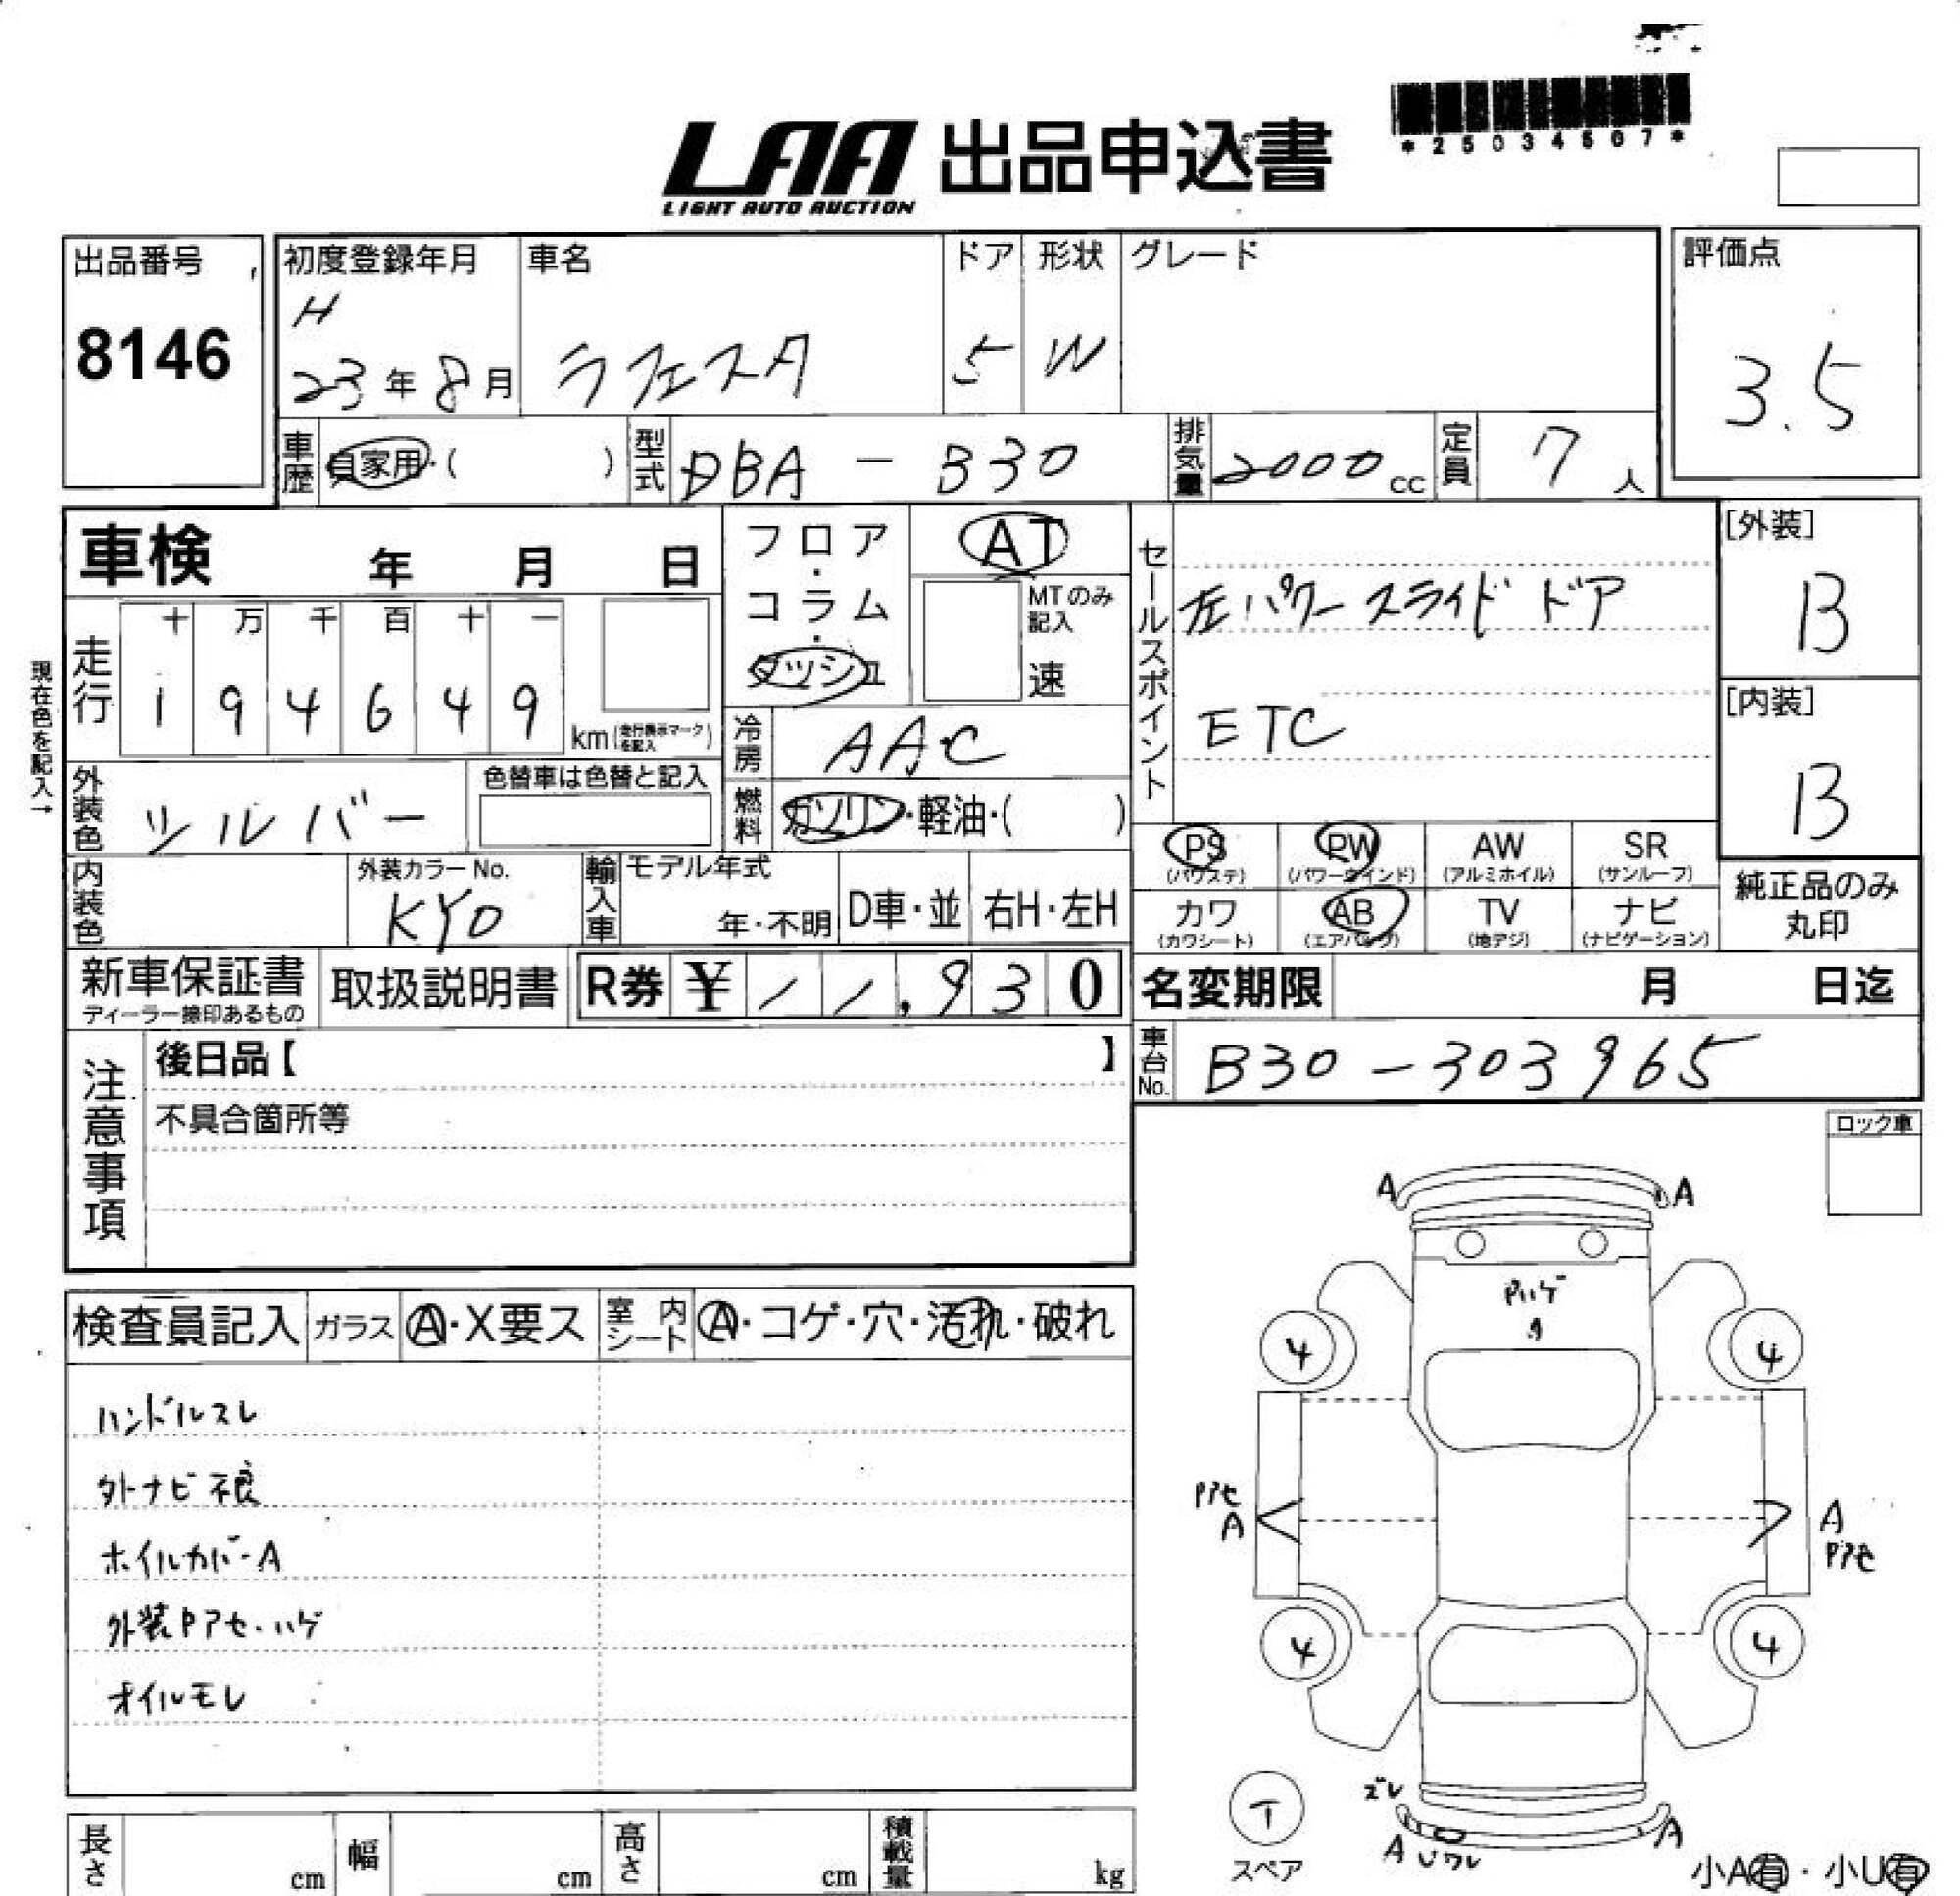 *25034507*
LAA 出品申込書
LIGHT AUTO AUCTION
出品番号
8146
初度登録年月
H
23年8月
車名
ラフェスタ
ドア
5
形状
W
グレード
評価点
3.5
車歴 自家用・( )
型式 DBA - B30
排気量 2000 cc
定員 7 人
車検 年 月 日
フロア・コラム・ダッシュ
AT
MTのみ記入
速
セールスポイント
左パワースライドドア
ETC
[外装]
B
[内装]
B
現在色を記入→
走行
十 万 千 百 十 一
1 9 4 6 4 9
km(走行表示マークを記入)
冷房 AAC
外装色 シルバー
色替車は色替と記入
燃料 ガソリン・軽油・( )
PS (パワステ)
PW (パワーウインド)
AW (アルミホイル)
SR (サンルーフ)
カワ (カワシート)
AB (エアバッグ)
TV (地デジ)
ナビ (ナビゲーション)
純正品のみ丸印
内装色
外装カラーNo.
KY0
輸入車
モデル年式
年・不明
D車・並
右H・左H
新車保証書
ディーラー捺印あるもの
取扱説明書
R券 ¥11,930
名変期限 月 日迄
車台No. B30-303965
注意事項
後日品【 】
不具合箇所等
ロック車
検査員記入
ガラス Ⓐ・X要ス
室内シート Ⓐ・コゲ・穴・汚れ・破れ
ハンドルスレ
外ナビ不良
ホイルカバーA
外装Pアセ・ハゲ
オイルモレ
A A
Pハゲ
4 4
Pアセ
A
A
Pアセ
4 4
ズレ
A Uワレ A
T
スペア
小A有・小U有
長さ cm
幅 cm
高さ cm
積載量 kg